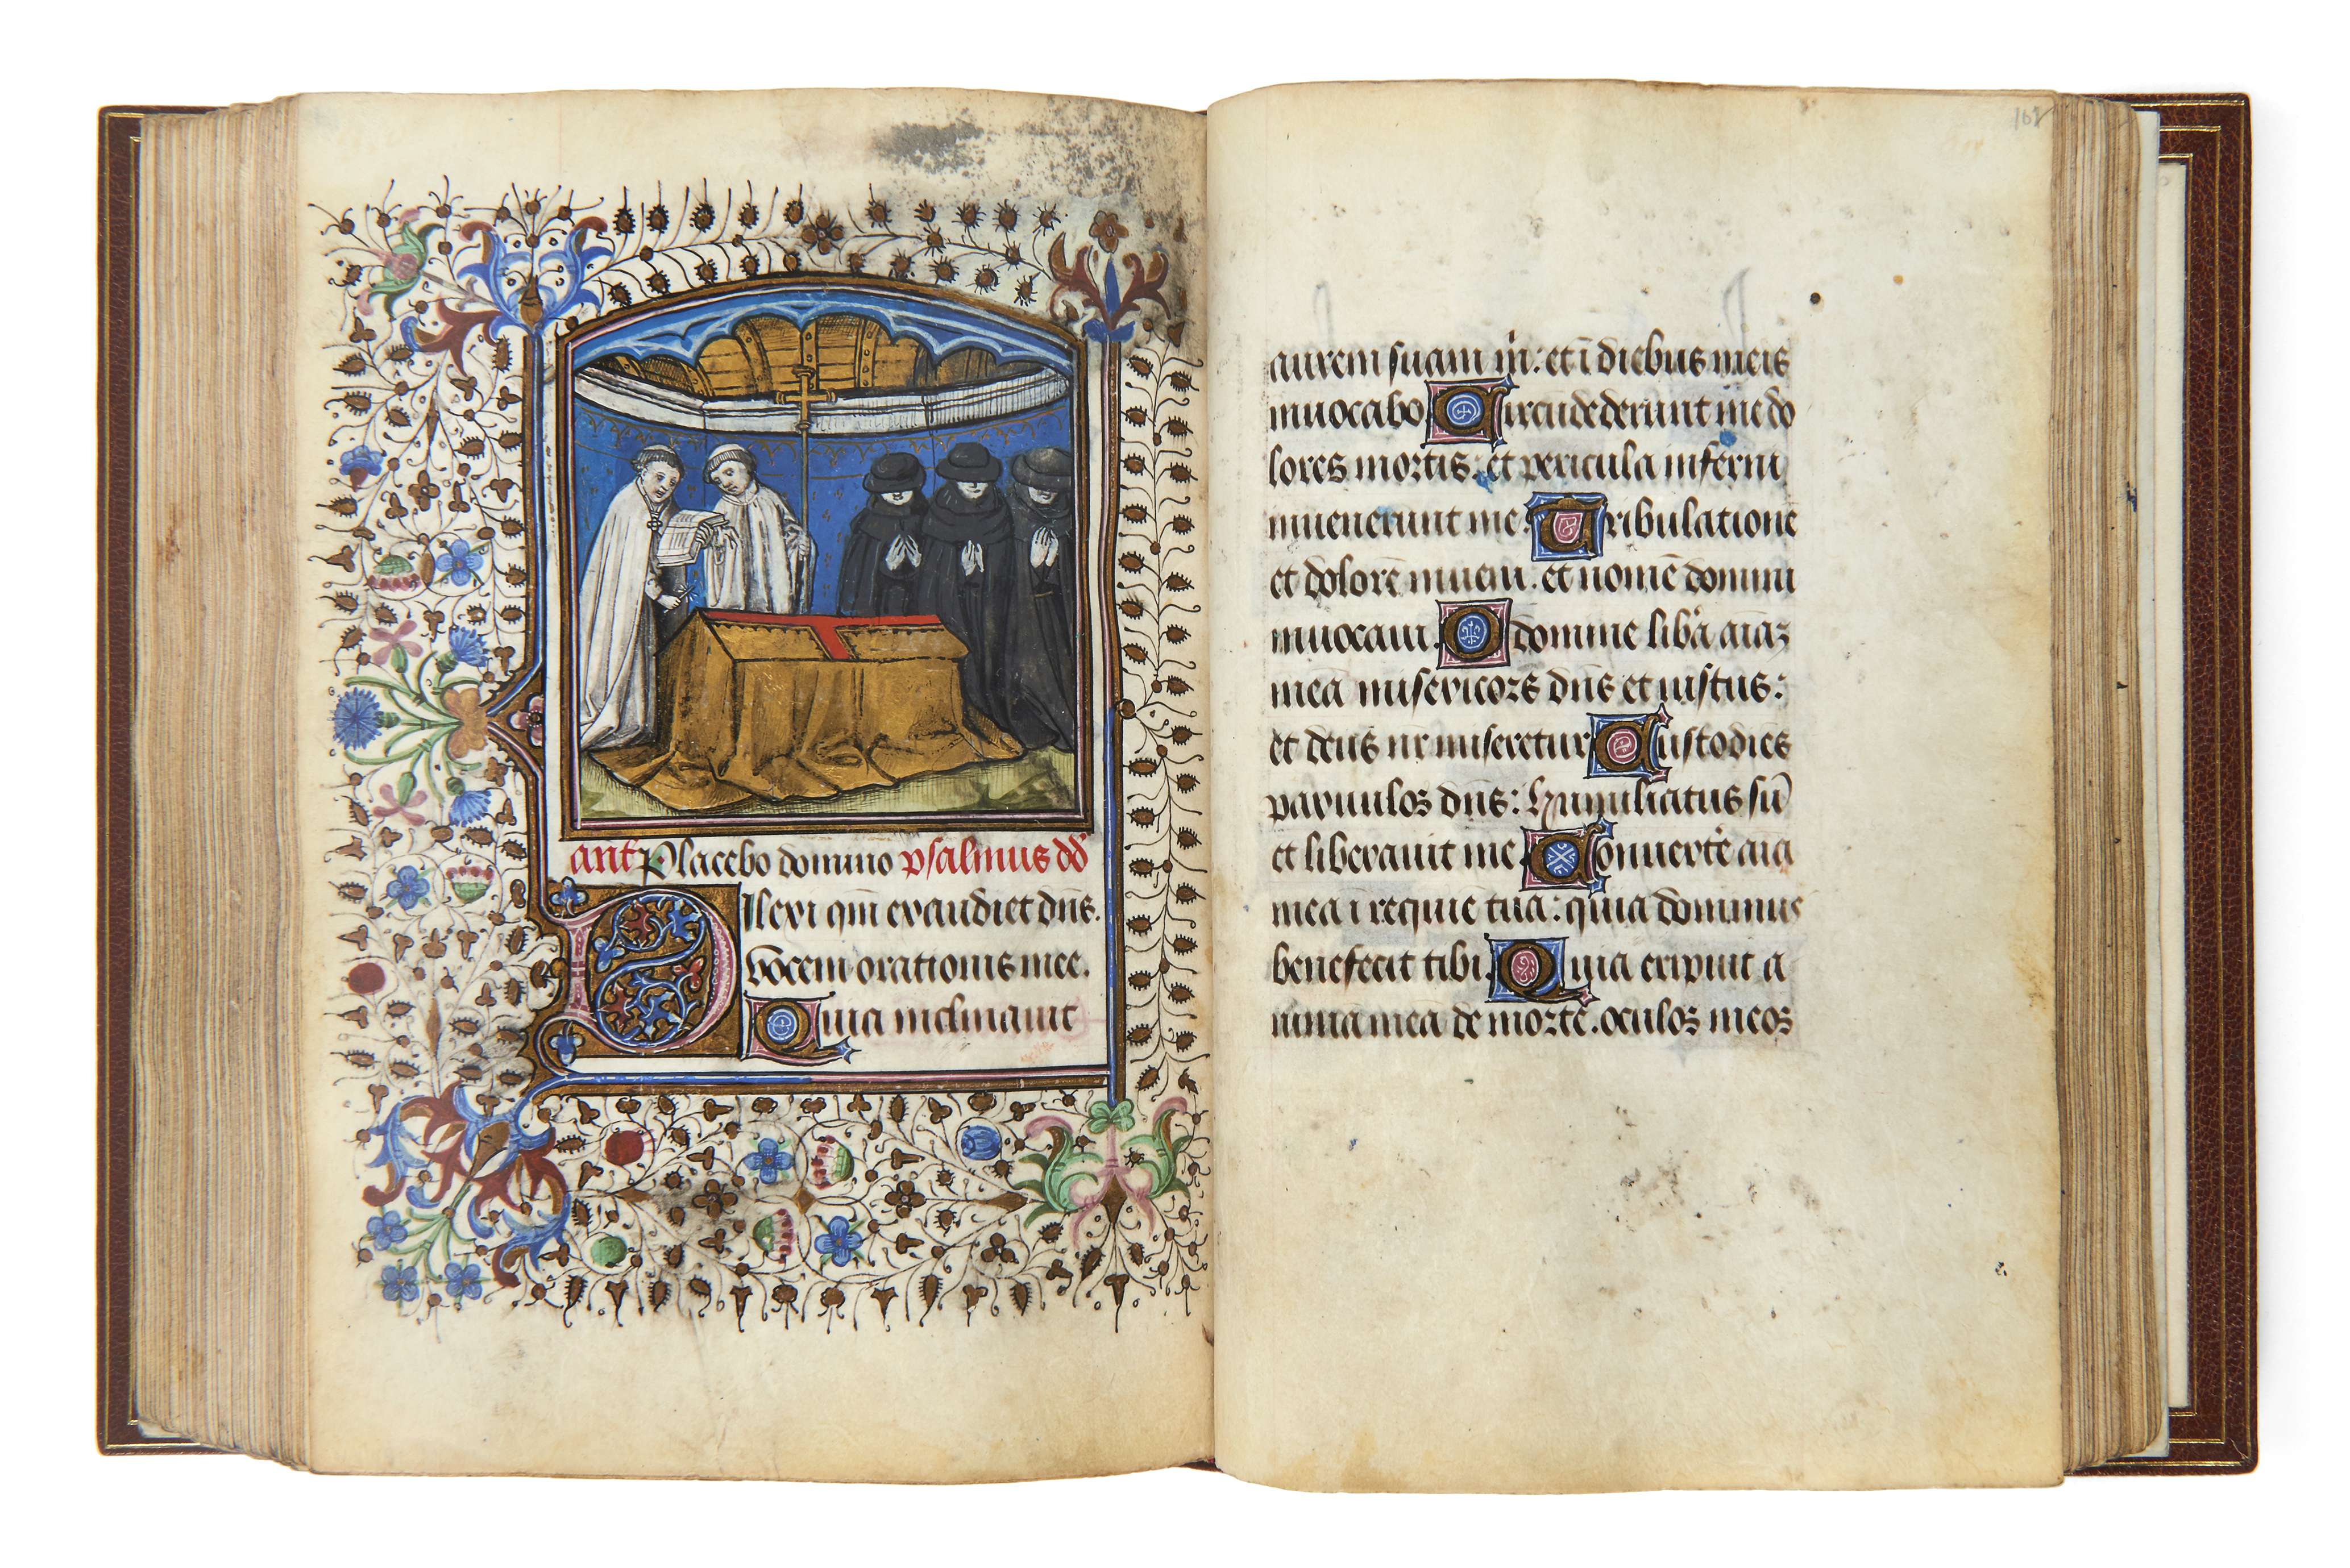 ant Placebo domino psalmus dd
Dilexi qm̄ exaudiet dn̄s.
vocem orationis mee.
Quia inclinauit
162
aurem suam m̄: et ī diebus meis
inuocabo Circūdederunt me do
lores mortis: et pericula inferni
inuenerunt me. Tribulationē
et dolorē inueni. et nomē domini
inuocaui. O domine libā aīaz
meā misericors dn̄s et iustus:
et deus nr̄ miseretur Custodies
paruulos dn̄s: humiliatus sū
et liberauit me. Conuertē aīa
mea ī requiē tuā: quia dominus
benefecit tibi. Quia eripuit a
nimā meā de morte. oculos meos